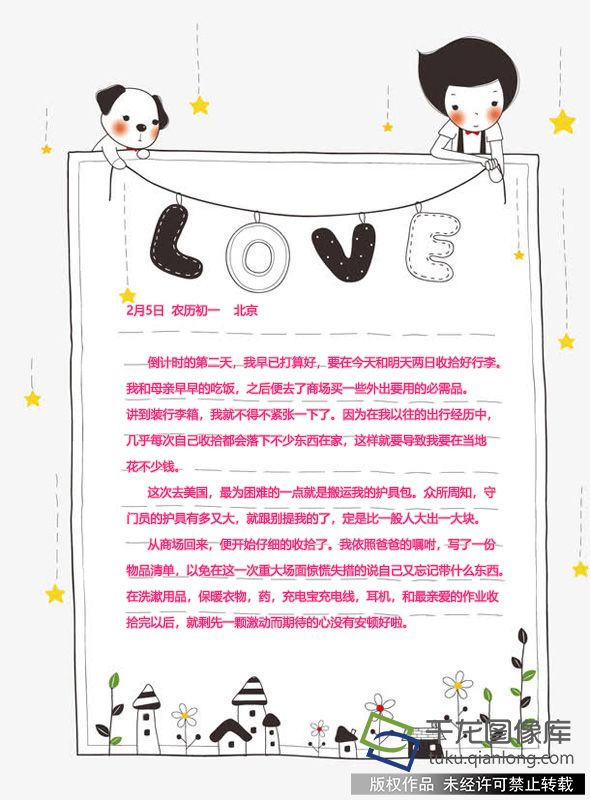 LOVE
2月5日 农历初一 北京
倒计时的第二天，我早已打算好，要在今天和明天两日收拾好行李。
我和母亲早早的吃饭，之后便去了商场买一些外出要用的必需品。
讲到装行李箱，我就不得不紧张一下了。因为在我以往的出行经历中，
几乎每次自己收拾都会落下不少东西在家，这样就要导致我要在当地
花不少钱。
这次去美国，最为困难的一点就是搬运我的护具包。众所周知，守
门员的护具有多又大，就跟别提我的了，定是比一般人大出一大块。
从商场回来，便开始仔细的收拾了。我依照爸爸的嘱咐，写了一份
物品清单，以免在这一次重大场面惊慌失措的说自己又忘记带什么东西。
在洗漱用品，保暖衣物，药，充电宝充电线，耳机，和最亲爱的作业收
拾完以后，就剩先一颗激动而期待的心没有安顿好啦。
千龙图像库
tuku.qianlong.com
版权作品 未经许可禁止转载